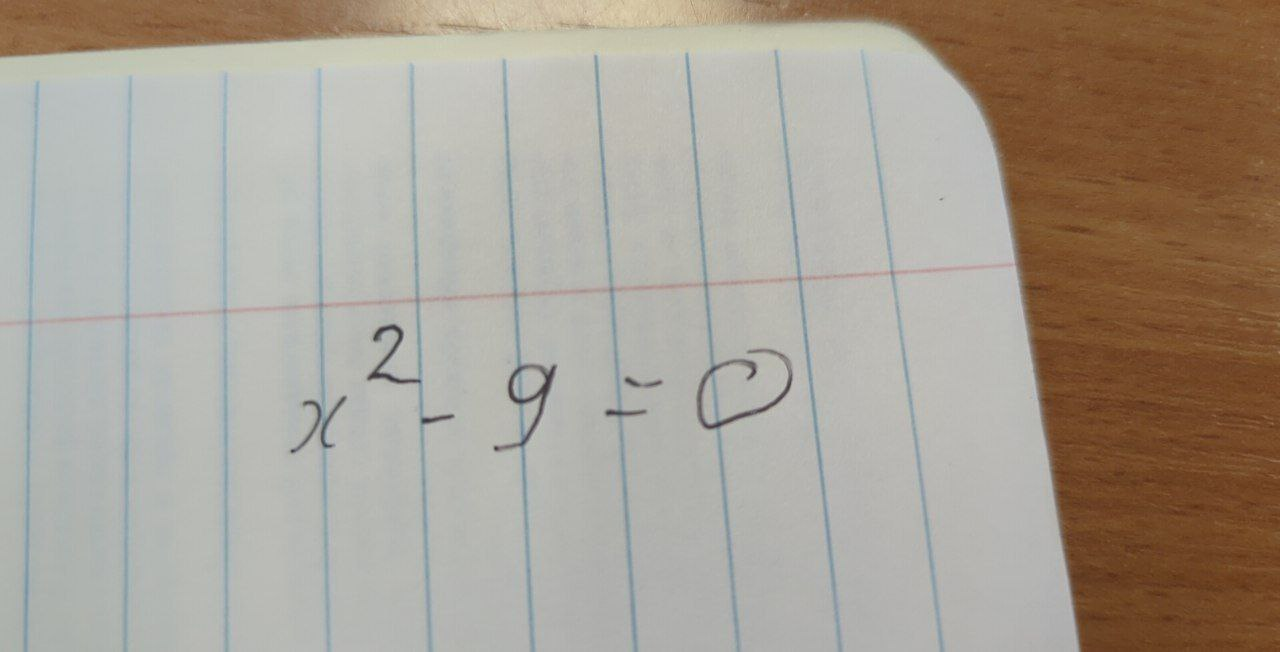 x² - 9 = 0